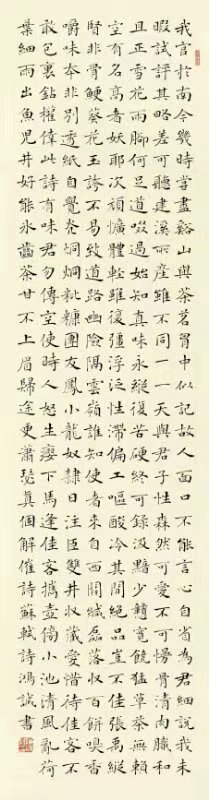 我言於南今幾時嘗盡谿山與茶茗胷中似記故人面口不能言心自省為君細說我未
暇試評其略差可聽建溪所產雖不同一一天與君子性森然可愛不可慢骨清肉膩和
且正雪花雨腳何足道啜過始知真味永縱復苦硬終可録汲黯少戇寬饒猛草茶無賴
空有名高者妖耶次頑懭體輕雖復彊浮泛性滯偏工嘔酸冷其間絕品豈不佳張禹縱
賢非骨鯁葵花玉誇不易致道路幽險隔雲嶺誰知使者來自西開緘磊落收百餅嗅香
嚼味本非別透紙自覺光炯炯粃糠團友鳳小龍奴隷日注臣雙井收藏愛惜待佳客不
敢包裹鑽權倖此詩有味君勿傳空使時人怒生癭下馬逢佳客攜壺傍小池清風亂荷
葉細雨出魚兒井好能冰齒茶甘不上眉歸途更蕭瑟真個解催詩蘇軾詩鴻誠書